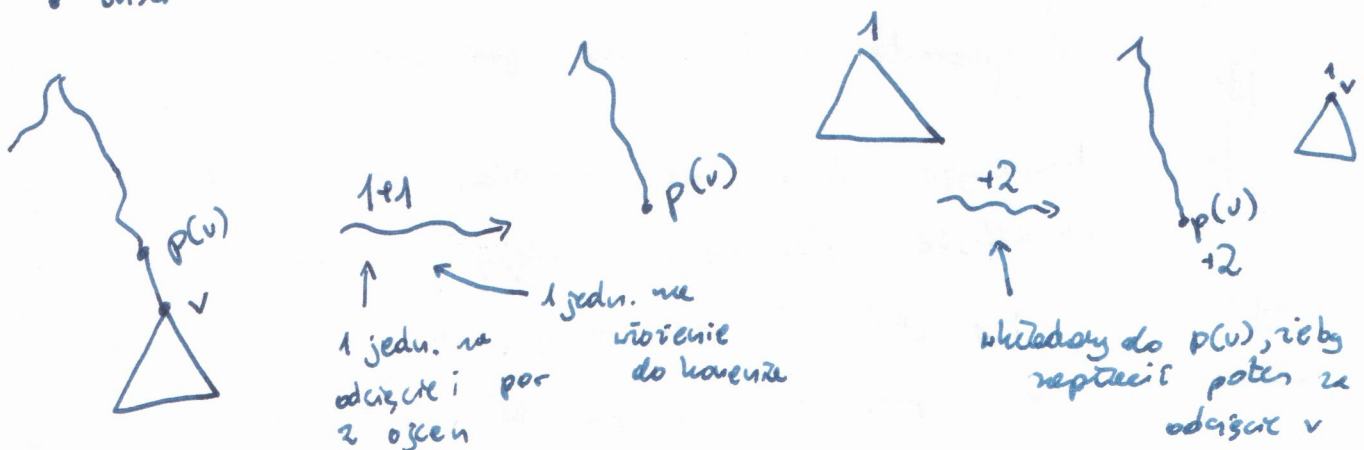 p(v)
v
1+1
1 jedn. na
odcięcie i por
z ojcem
1 jedn. na
włożenie
do korzenia
p(v)
1
+2
p(v)
+2
1
v
wkładamy do p(v), żeby
zapłacić potem za
odcięcie v